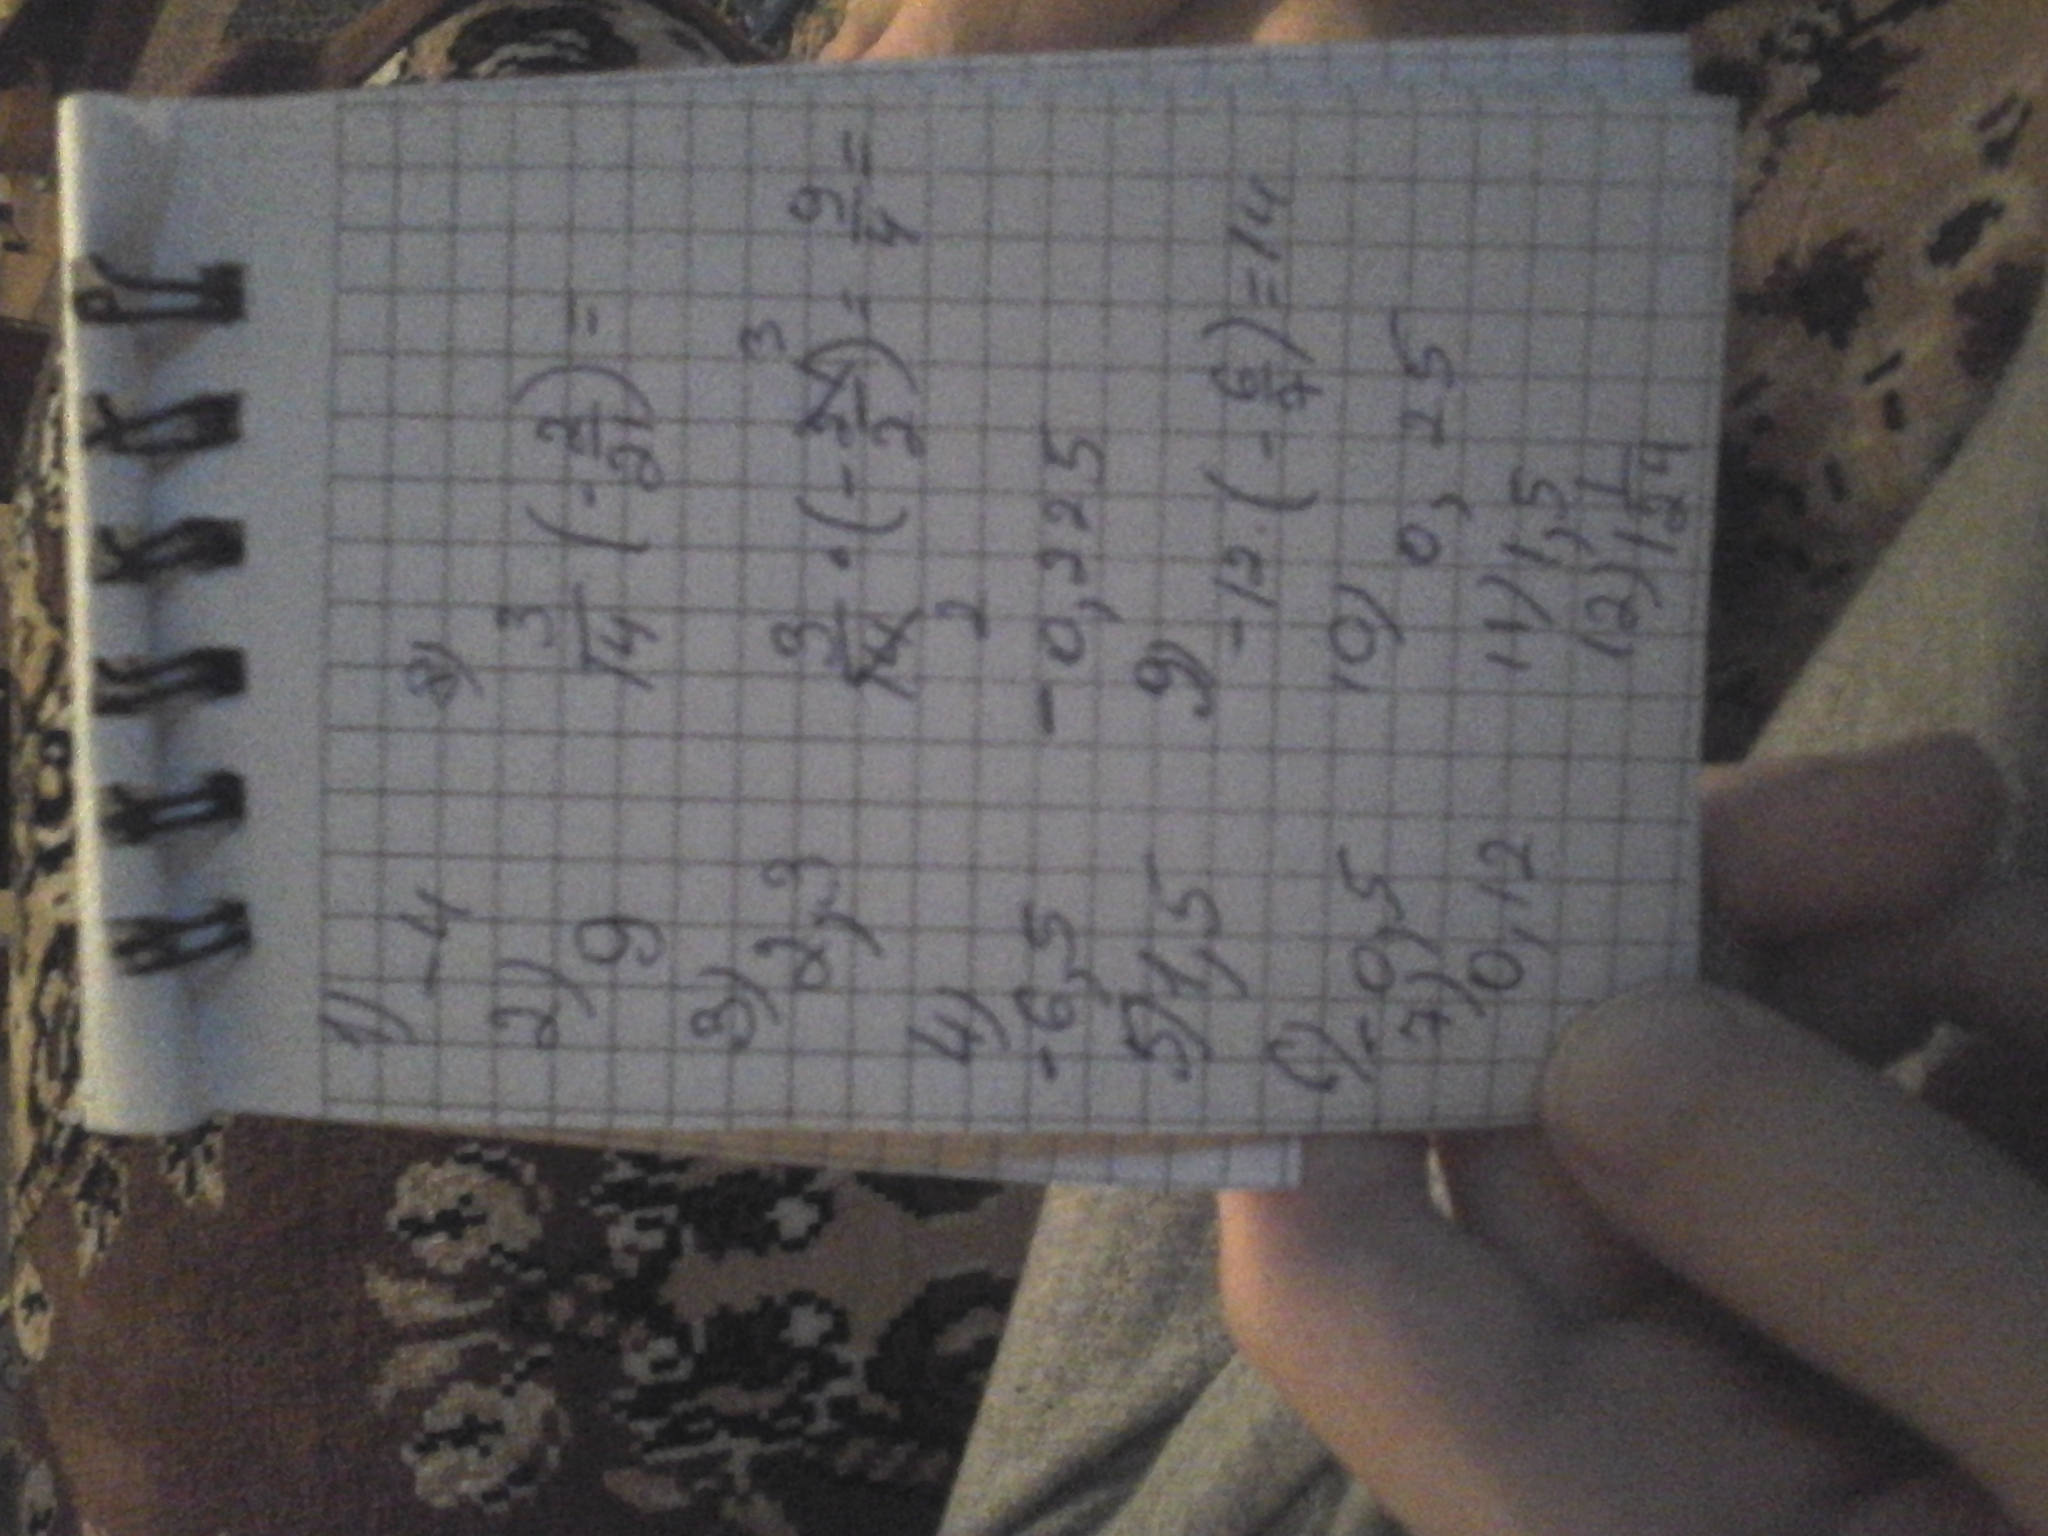 1)
-4
2)
9
3)
2,3
4)
-6,5
5) 1,5
6)
-0,5
7)
0,12
8)
3/14 (-2/21) =
3/14 · (-21/2) = 9/4 =
2 3
-0,225
9)
-12 · (-6/7) = 14
10)
0,25
11) 1,5
12) 1 1/24